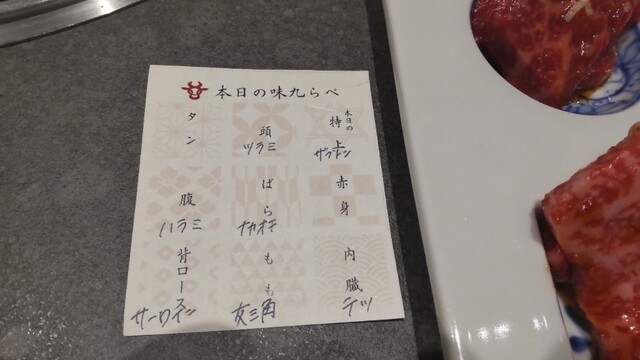 本日の味九らべ
本日の
特上
ザブトン
赤身
内臓
テツ
頭
ツラミ
ばら
ナカオチ
もも
友三角
タン
腹
ハラミ
背ロース
サーロイン